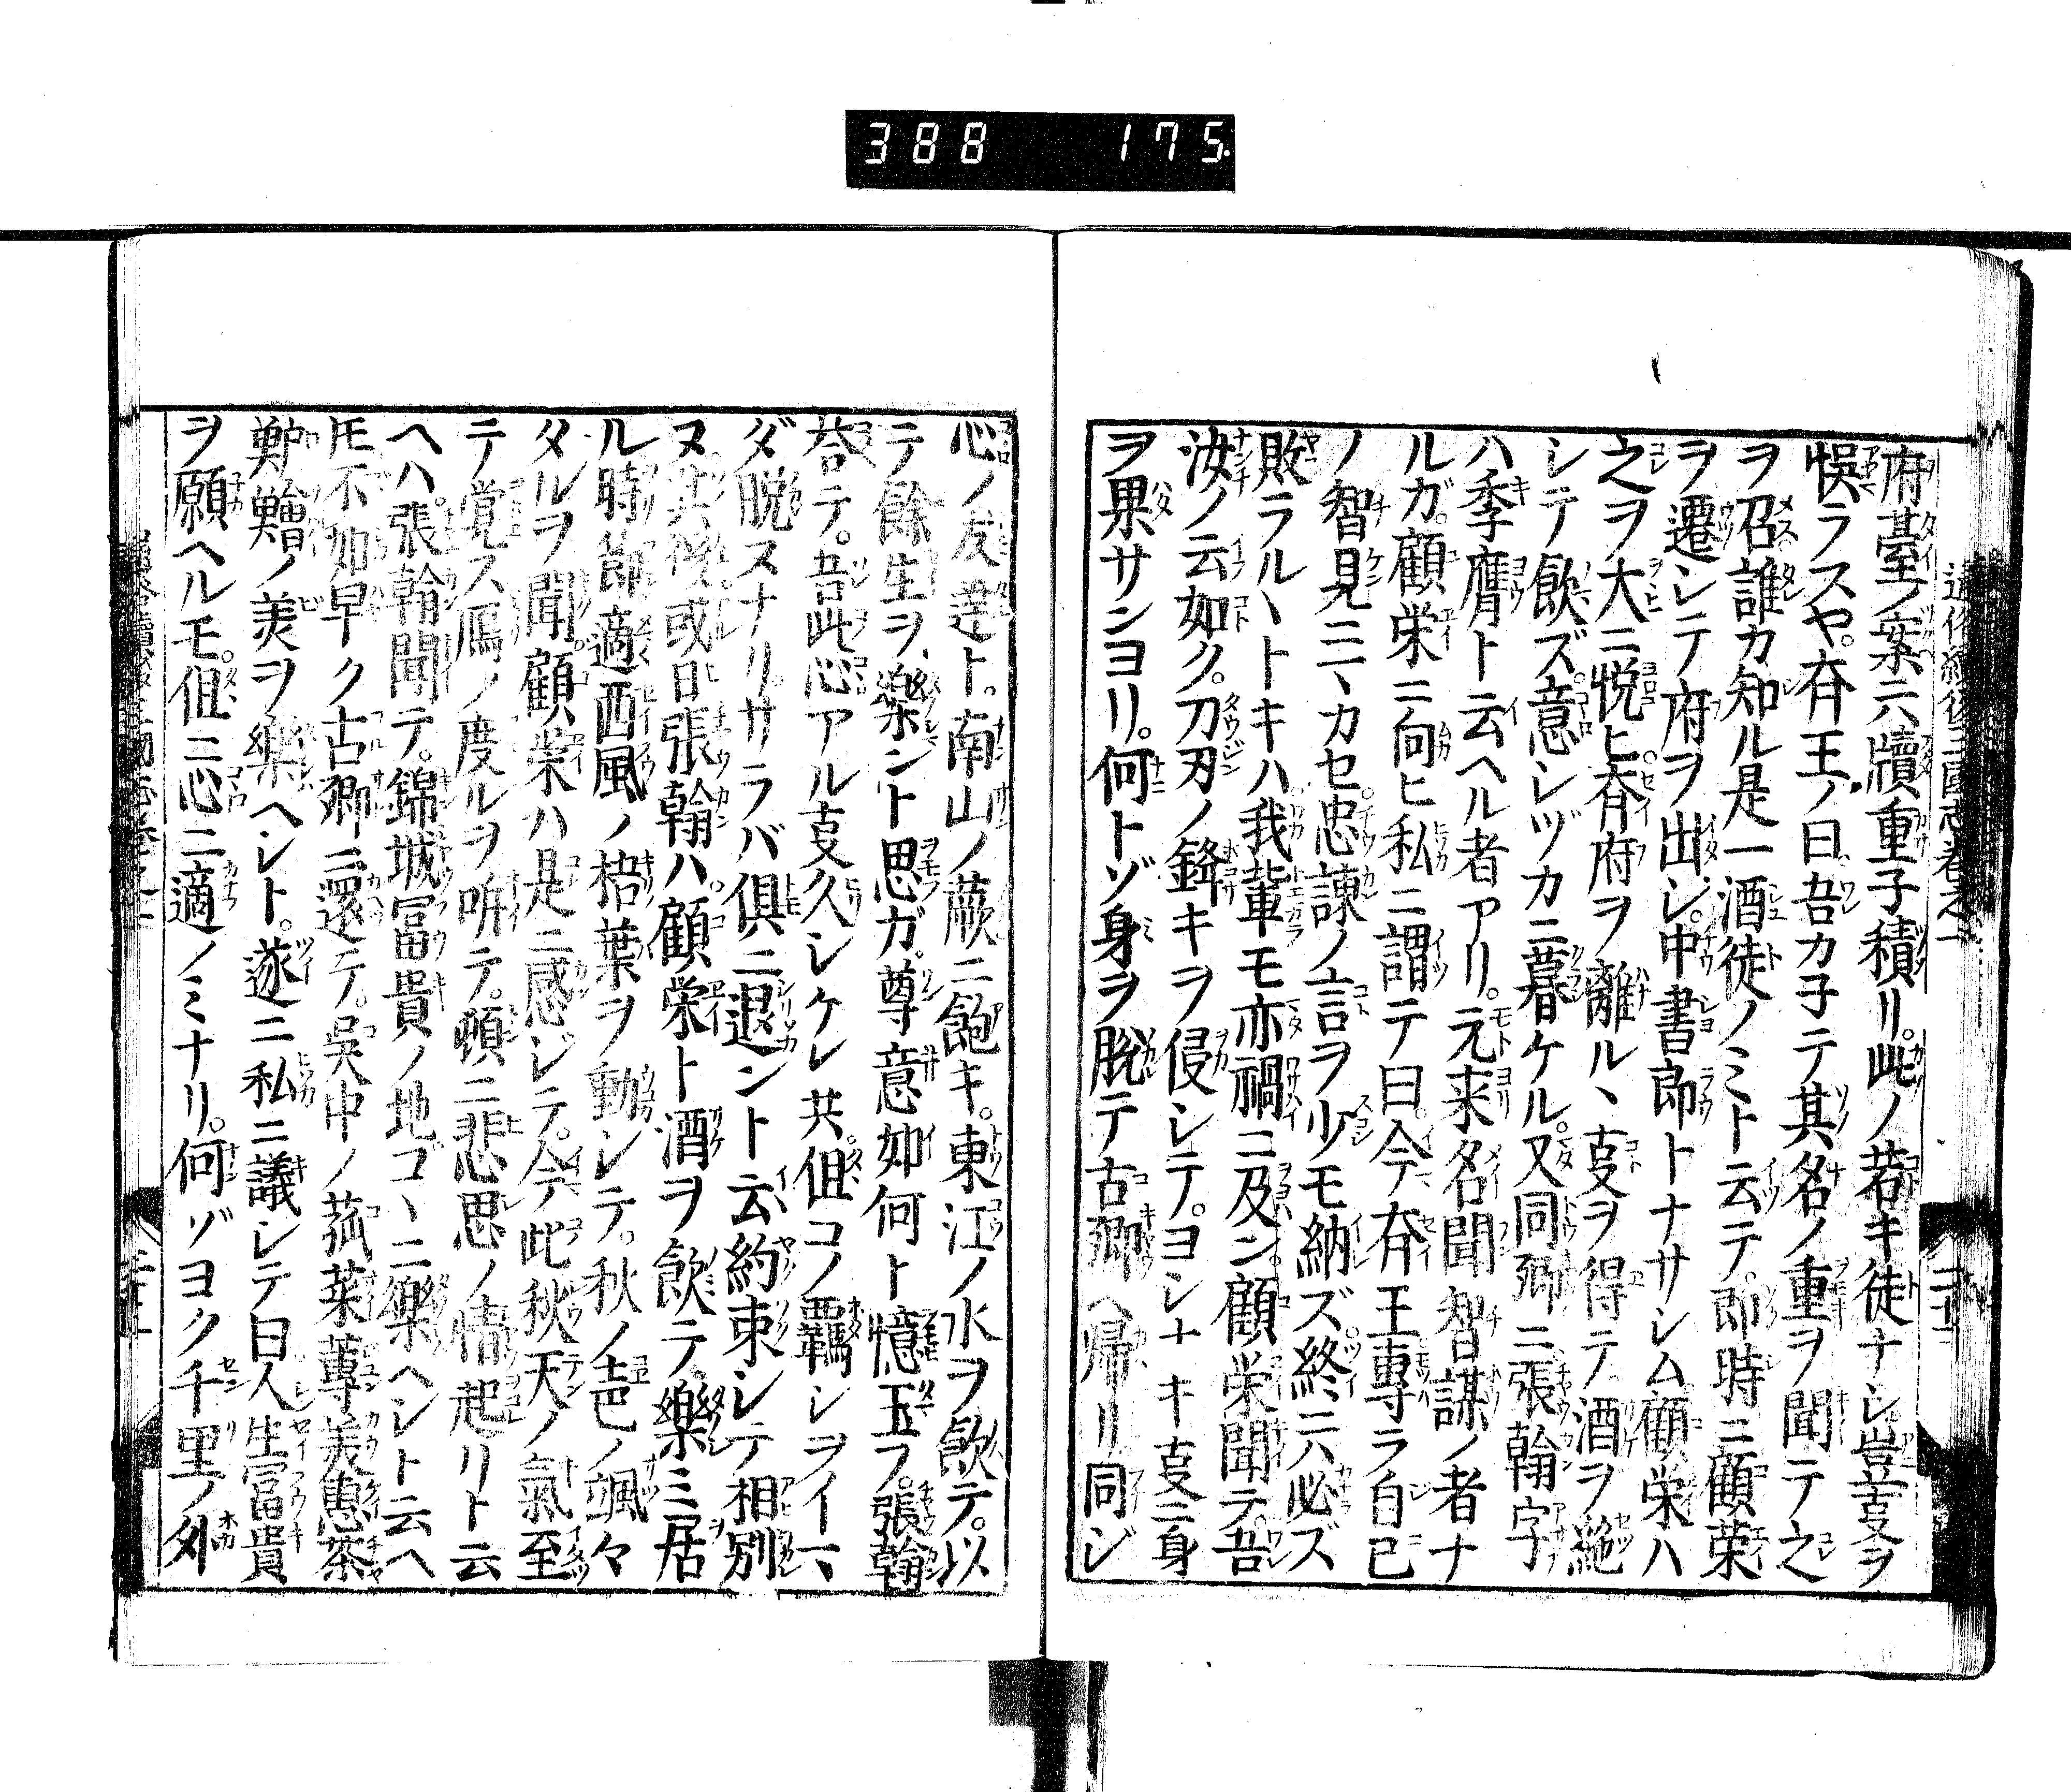 388 175
通俗續後三國志巻之一
府臺ノ案六牘重子積リ。此ノ若キ徒ナシ豈叓ヲ
悞ラスヤ。斉王ノ曰吾カ子テ其名ノ重ヲ聞テ之
ヲ召誰カ知ル是一酒徒ノミト云テ。即時ニ顧栄
ヲ遷シテ府ヲ出シ。中書郎トナサシム顧栄ハ
之ヲ大ニ悦ヒ斉府ヲ離ルヽ叓ヲ得テ酒ヲ絶
シテ飲ズ意シヅカニ暮ケル。又同郷ニ張翰字
ハ季鷹ト云ヘル者アリ。元来名聞智謀ノ者ナ
ルガ。顧栄ニ向ヒ私ニ謂テ曰。今斉王專ラ自己
ノ智見ニマカセ忠諫ノ言ヲ少モ納ズ終ニ八必ズ
敗ラルヽトキハ我輩モ亦禍ニ及ン顧栄聞テ。吾
汝ノ云如ク。刀刃ノ鋒キヲ侵シテ。ヨシナキ叓ニ身
ヲ果サンヨリ。何トゾ身ヲ脱テ古郷ヘ帰リ同ジ
心ノ友達ト。南山ノ蕨ニ飽キ。東江ノ水ヲ飲テ。以
テ餘生ヲ樂ント思ガ。尊意如何ト憶玉フ。張翰
荅テ。吾此心アル叓久シケレ共。但コノ覊シヲイマ
ダ脱スナリ。サラバ俱ニ退ント云約束シテ相別
ヌ其後或日張翰ハ顧栄ト酒ヲ飲テ樂ミ居
ル時節適西風ノ梧葉ヲ動シテ。秋ノ声ノ颯々
タルヲ聞顧栄ハ是ニ感ジテ。今此秋天ノ氣至
テ覚ス鴈ノ度ルヲ听テ。頓ニ悲思ノ情起リト云
ヘハ。張翰聞テ。錦城富貴ノ地ゴヽニ樂ヘシト云ヘ
𪜈不如早ク古郷ニ還テ。呉中ノ菰菜蓴羙惠茶
鱸鱠ノ羙ヲ樂ヘシト。遂ニ私ニ議シテ曰人生富貴
ヲ願ヘルモ。但ニ心ニ適ノミナリ。何ゾヨク千里ノ外